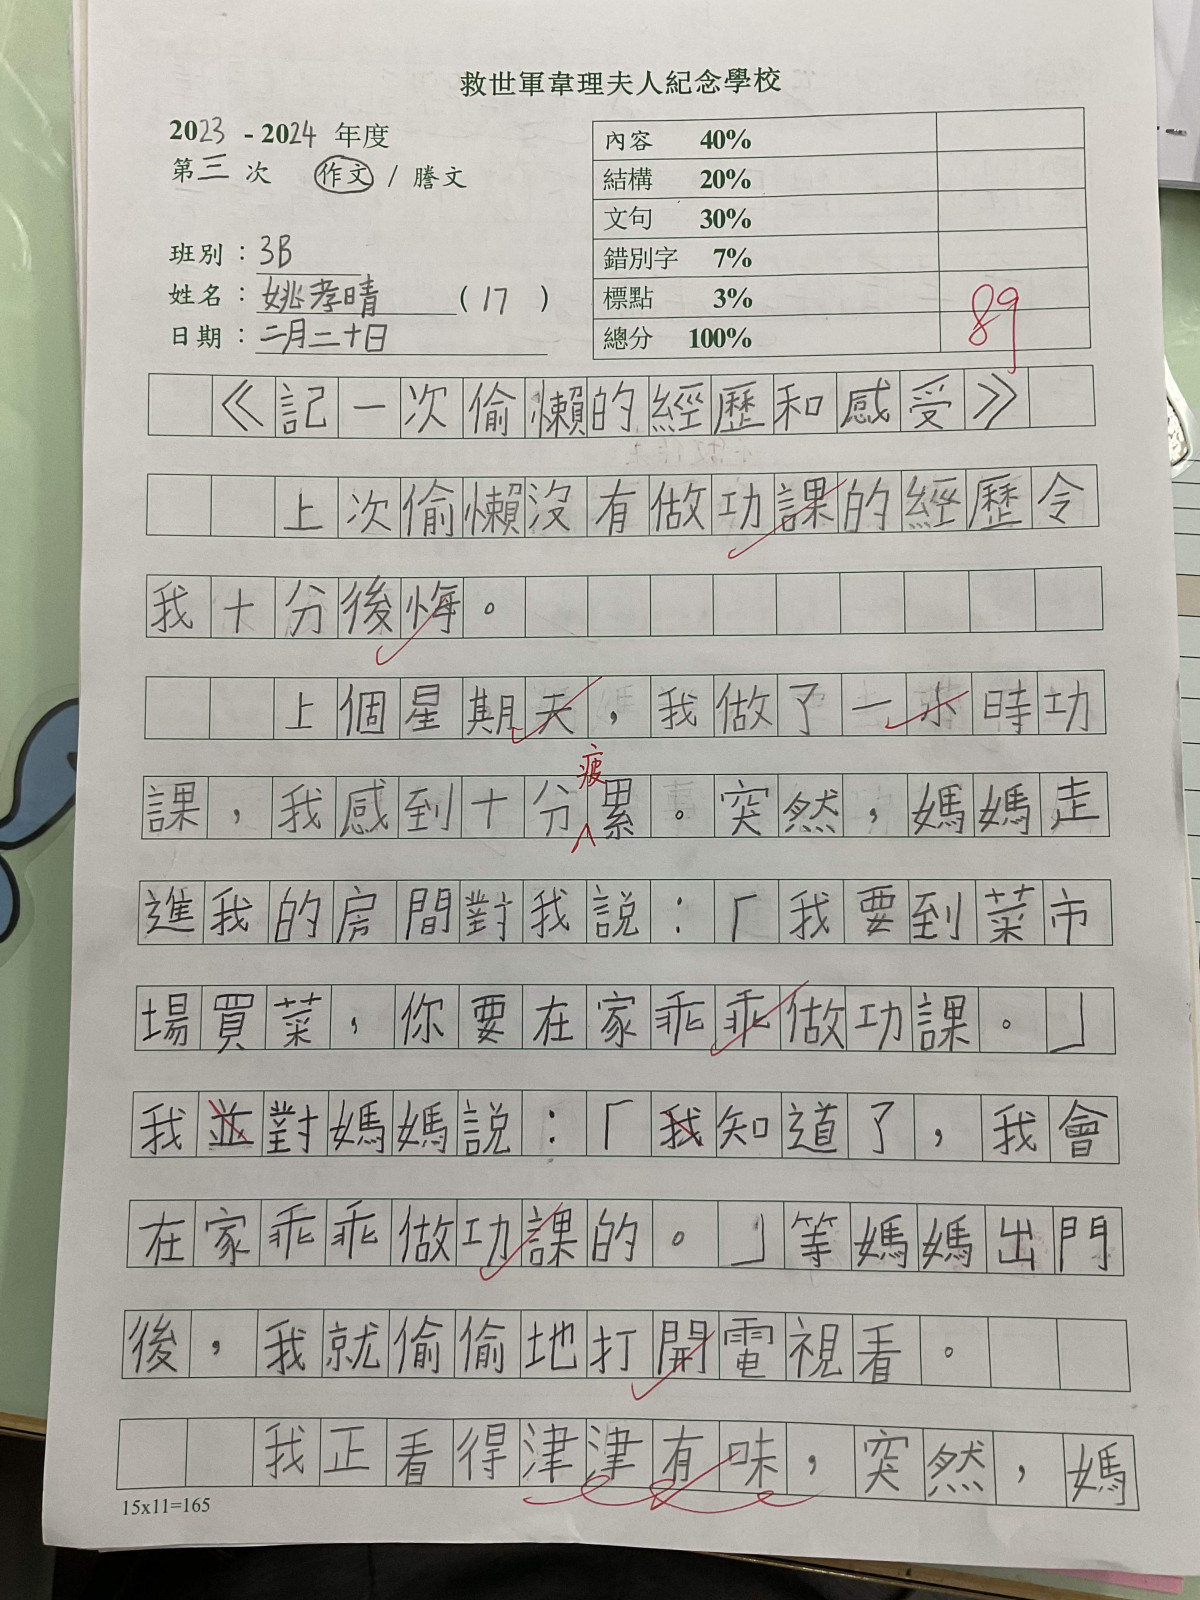 救世軍韋理夫人紀念學校
2023 - 2024 年度
第三次 作文 / 謄文
班別：3B
姓名：姚孝晴 (17)
日期：二月二十日
內容 40%
結構 20%
文句 30%
錯別字 7%
標點 3%
總分 100% 89
《記一次偷懶的經歷和感受》
上次偷懶沒有做功課的經歷令
我十分後悔。
上個星期天，我做了一小時功
課，我感到十分疲累。突然，媽媽走
進我的房間對我說：「我要到菜市
場買菜，你要在家乖乖做功課。」
我並對媽媽說：「我知道了，我會
在家乖乖做功課的。」等媽媽出門
後，我就偷偷地打開電視看。
我正看得津津有味，突然，媽
15x11=165